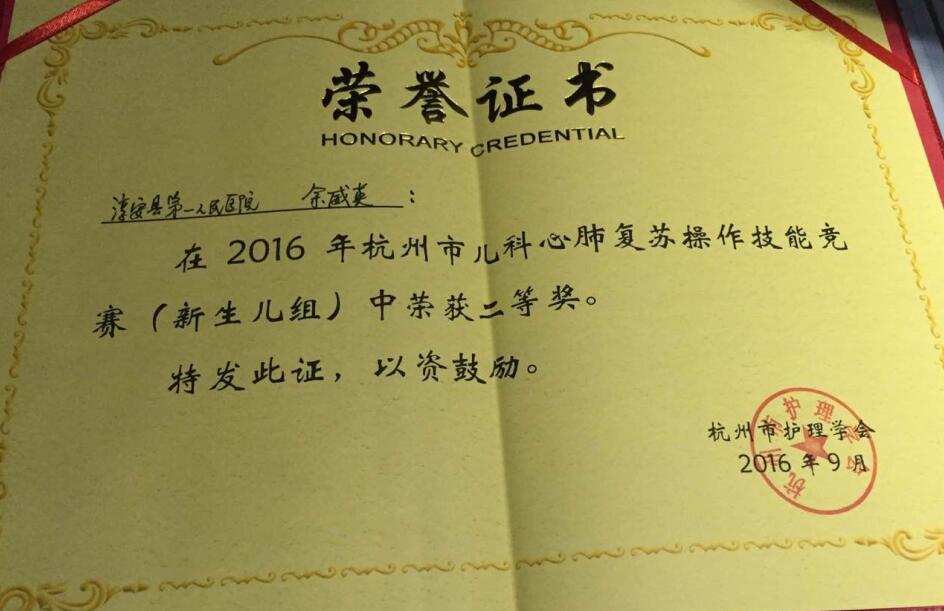 荣誉证书
HONORARY CREDENTIAL
淳安县第一人民医院 余威英：
在 2016 年杭州市儿科心肺复苏操作技能竞
赛（新生儿组）中荣获二等奖。
特发此证，以资鼓励。
杭州市护理学会
2016 年 9 月
杭州市护理学会